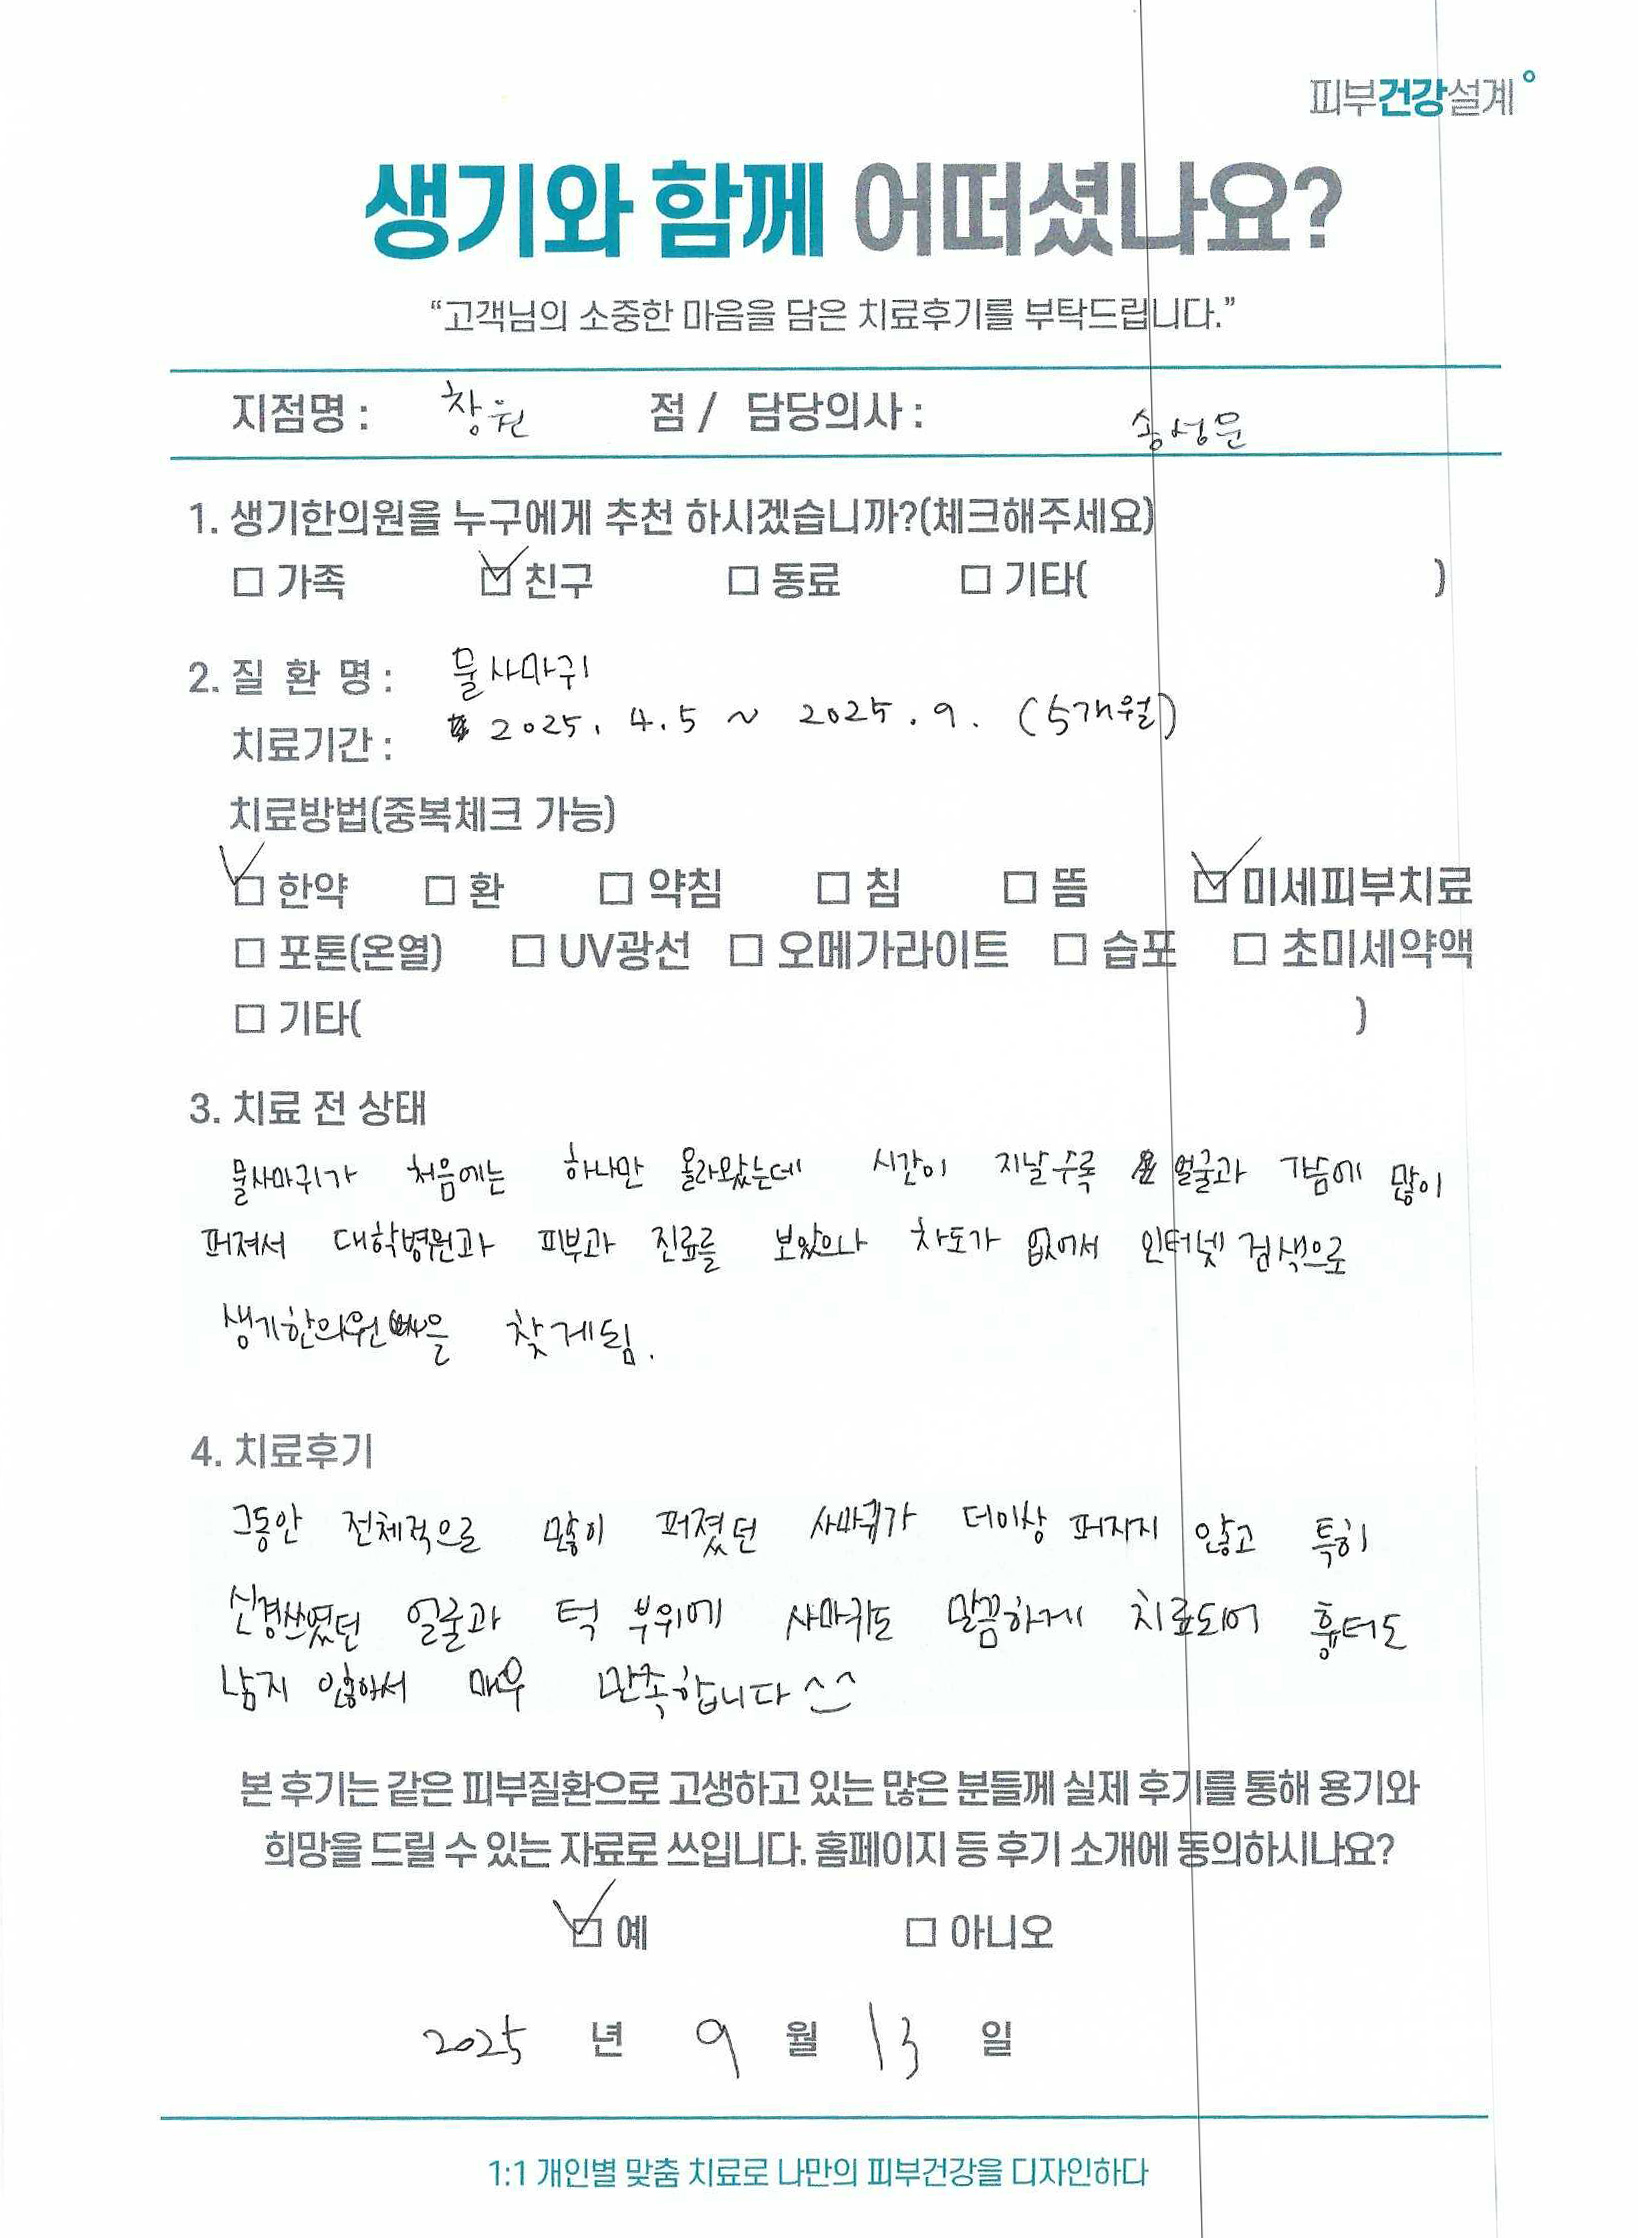 피부건강설계
생기와 함께 어떠셨나요?
“고객님의 소중한 마음을 담은 치료후기를 부탁드립니다.”
지점명 : 창원 점 / 담당의사 : 송성문
1. 생기한의원을 누구에게 추천 하시겠습니까?(체크해주세요)
□ 가족 ☑ 친구 □ 동료 □ 기타( )
2. 질 환 명 : 물사마귀
치료기간 : 2025. 4. 5 ~ 2025. 9. (5개월)
치료방법(중복체크 가능)
☑ 한약 □ 환 □ 약침 □ 침 □ 뜸 ☑ 미세피부치료
□ 포톤(온열) □ UV광선 □ 오메가라이트 □ 습포 □ 초미세약액
□ 기타( )
3. 치료 전 상태
물사마귀가 처음에는 하나만 올라왔는데 시간이 지날수록 얼굴과 가슴에 많이
퍼져서 대학병원과 피부과 진료를 보았으나 차도가 없어서 인터넷 검색으로
생기한의원을 찾게됨.
4. 치료후기
그동안 전체적으로 많이 퍼졌던 사마귀가 더이상 퍼지지 않고 특히
신경쓰였던 얼굴과 턱 부위에 사마귀도 말끔하게 치료되어 흉터도
남지 않아서 매우 만족합니다 ^^
본 후기는 같은 피부질환으로 고생하고 있는 많은 분들께 실제 후기를 통해 용기와
희망을 드릴 수 있는 자료로 쓰입니다. 홈페이지 등 후기 소개에 동의하시나요?
☑ 예 □ 아니오
2025 년 9 월 13 일
1:1 개인별 맞춤 치료로 나만의 피부건강을 디자인하다